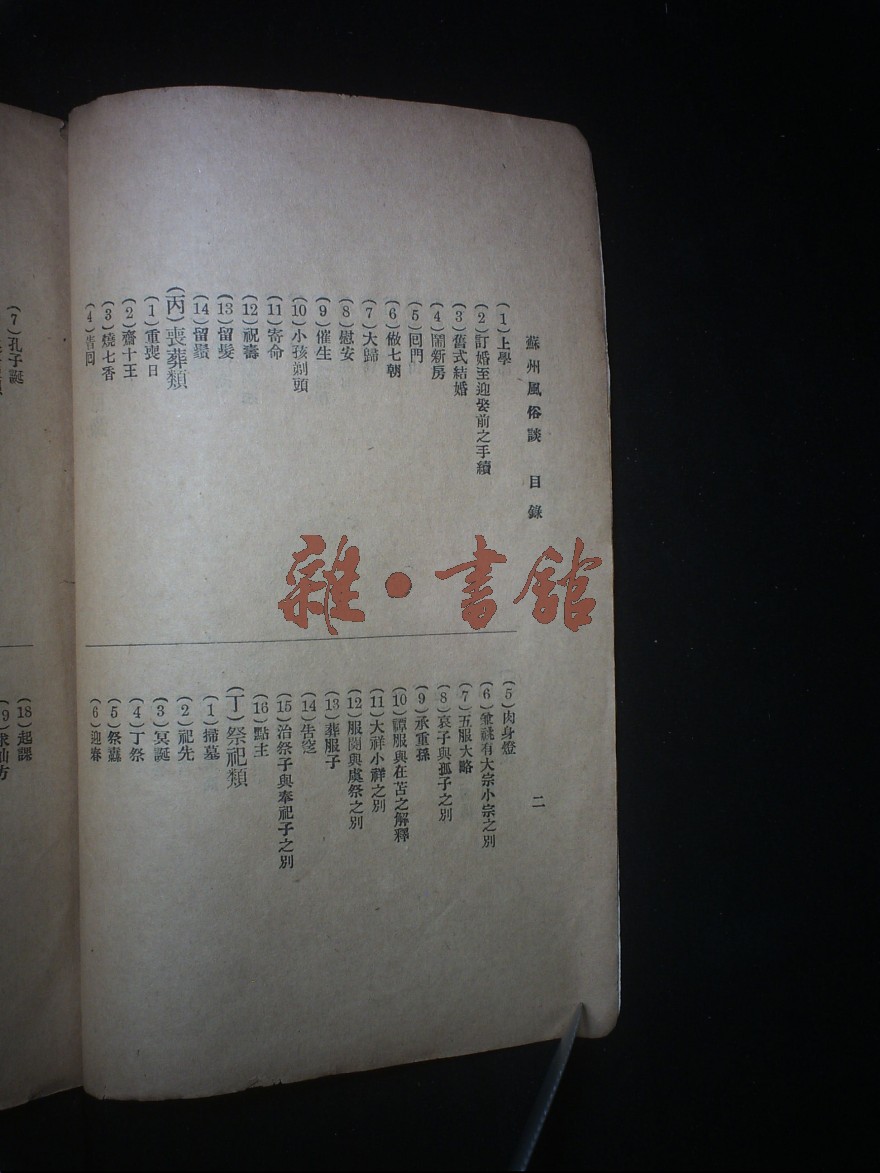 蘇州風俗談 目錄
二
(1)上學
(2)訂婚至迎娶前之手續
(3)舊式結婚
(4)鬧新房
(5)回門
(6)做七朝
(7)大歸
(8)慰安
(9)催生
(10)小孩剃頭
(11)寄命
(12)祝壽
(13)留髮
(14)留鬚
(丙)喪葬類
(1)重喪日
(2)齋十王
(3)燒七香
(4)告回
(5)肉身燈
(6)兼祧有大宗小宗之別
(7)五服大略
(8)哀子與孤子之別
(9)承重孫
(10)禫服與在苫之解釋
(11)大祥小祥之別
(12)服闋與虞祭之別
(13)葬服子
(14)告窆
(15)治祭子與奉祀子之別
(16)點主
(丁)祭祀類
(1)掃墓
(2)祀先
(3)冥誕
(4)丁祭
(5)祭纛
(6)迎春
(7)孔子誕
(18)起課
雜·書館